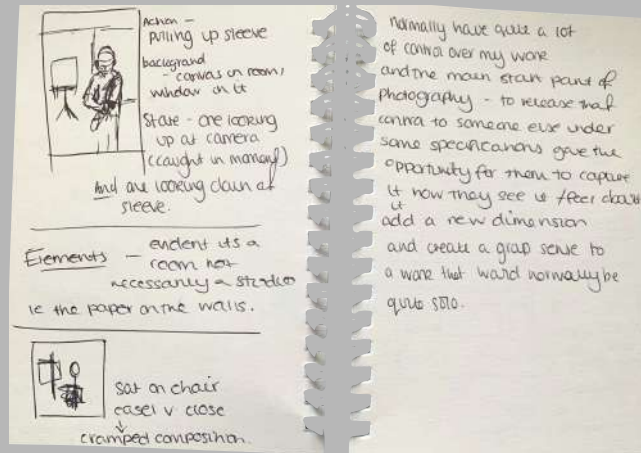 Action -
pulling up sleeve
background
- canvas in room,
window in it
State - one looking
up at camera
(caught in moment)
And one looking down at
sleeve.
Elements - evident its a
room not
necessarily a studio
ie the paper on the walls.
sat on chair
easel v close
cramped composition.
normally have quite a lot
of control over my work
and the main start point of
photography - to release that
control to someone else under
some specifications gave the
opportunity for them to capture
it how they see it / feel about
it
add a new dimension
and create a group sense to
a work that would normally be
quite solo.